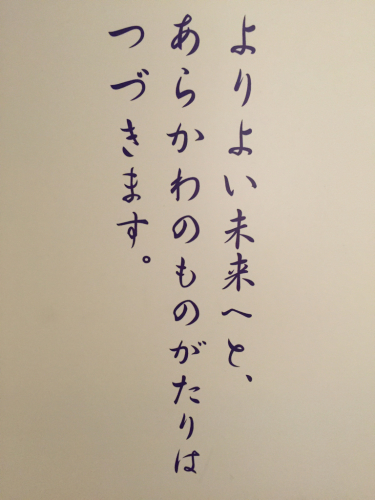 よりよい未来へと、
あらかわのものがたりは
つづきます。